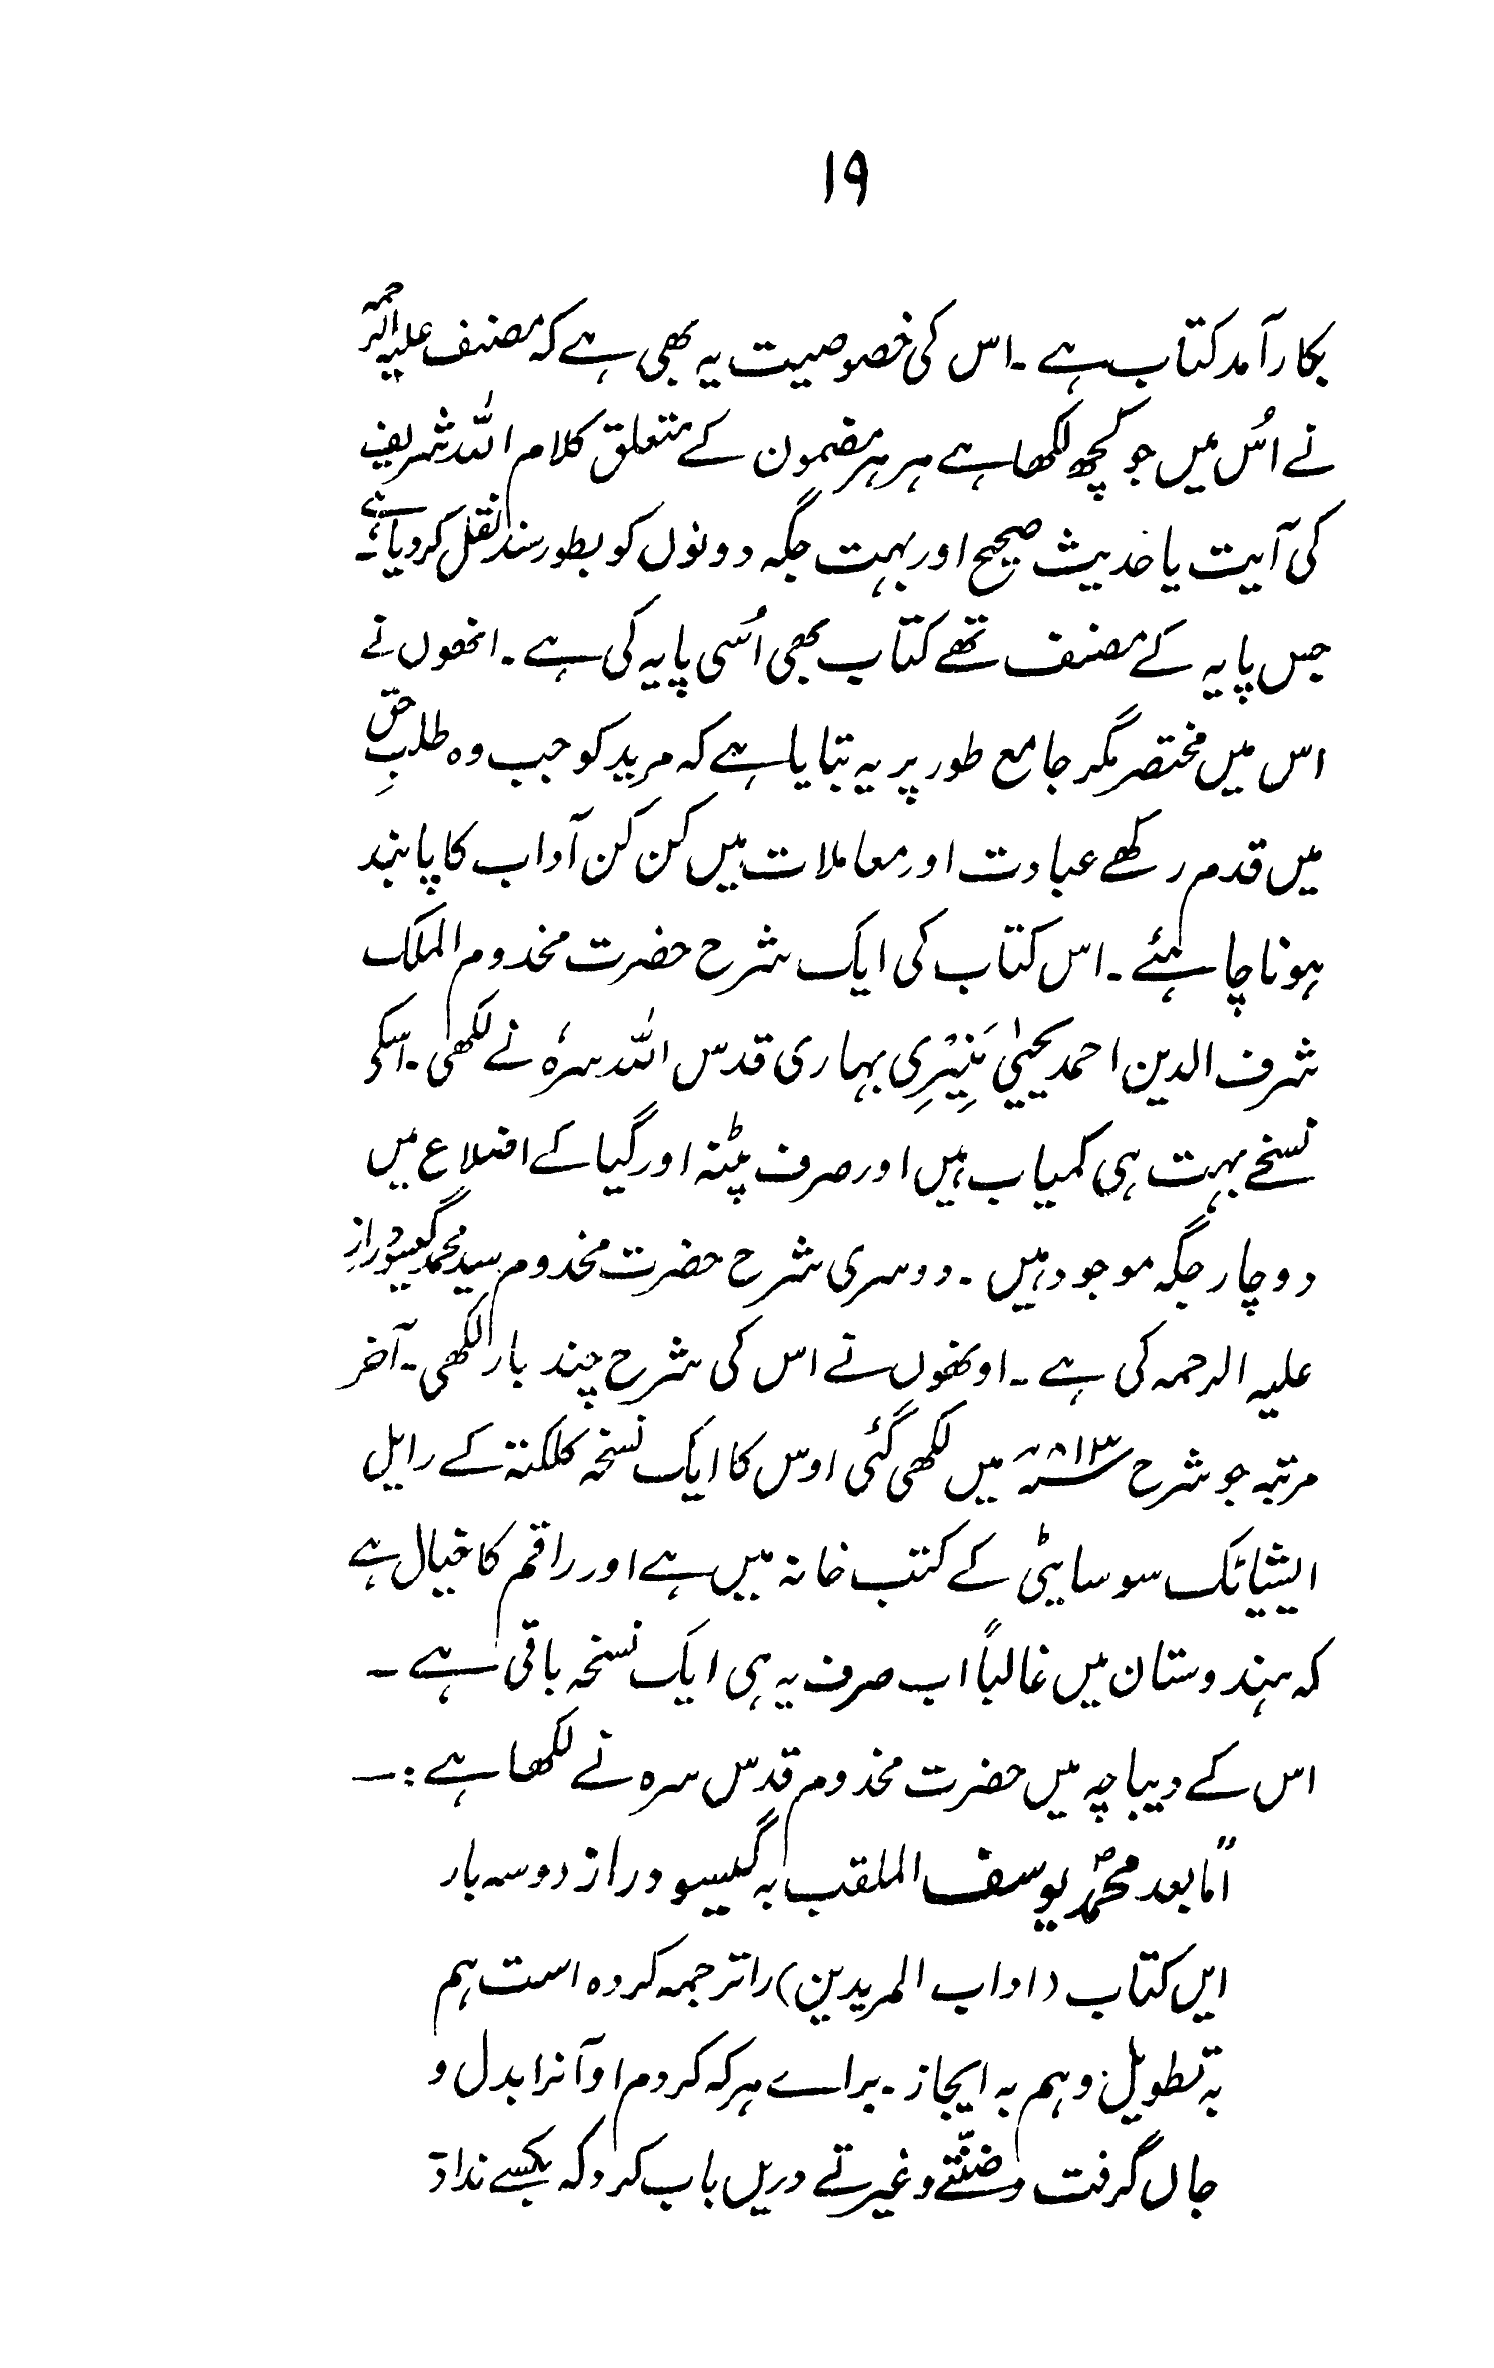 ۱۹
بکار آمد کتاب ہے ۔ اس کی خصوصیت یہ بھی ہے کہ مصنف علیہ الرحمہ
نے اُس میں جو کچھ لکھا ہے ہر ہر مضمون کے متعلق کلام اللہ شریف
کی آیت یا حدیث صحیح اور بہت جگہ دونوں کو بطور سند نقل کردیا ہے۔
جس پایہ کے مصنف تھے کتاب بھی اُسی پایہ کی ہے ۔ انھوں نے
اس میں مختصر مگر جامع طور پر یہ بتایا ہے کہ مرید کو جب وہ طلبِ حق
میں قدم رکھے عبادت اور معاملات میں کن کن آداب کا پابند
ہونا چاہئے ۔ اس کتاب کی ایک شرح حضرت مخدوم الملک
شرف الدین احمد یحییٰ مَنِیْرِی بہاری قدس اللہ سرہٗ نے لکھی ۔ اسکے
نسخے بہت ہی کمیاب ہیں اور صرف پٹنہ اور گیا کے اضلاع میں
دو چار جگہ موجود ہیں ۔ دوسری شرح حضرت مخدوم سید محمد گیسو دراز
علیہ الرحمہ کی ہے ۔ اوںھوں نے اس کی شرح چند بار لکھی ۔ آخر
مرتبہ جو شرح ۸۱۳ھ میں لکھی گئی اوس کا ایک نسخہ کلکتہ کے رایل
ایشیاٹک سوسایٹی کے کتب خانہ میں ہے اور راقم کا خیال ہے
کہ ہندوستان میں غالباً اب صرف یہ ہی ایک نسخہ باقی ہے ۔
اس کے دیباچہ میں حضرت مخدوم قدس سرہ نے لکھا ہے :۔
"امّا بعد محمدؐ یوسف الملقب بہ گیسو دراز دو سہ بار
ایں کتاب (اداب المریدین) را ترجمہ کردہ است ہم
بہ تطویل و ہم بہ ایجاز ۔ براے ہر کہ کردم او آنرا بدل و
جاں گرفت و ضنّتے و غیرتے دریں باب کرد کہ بکسے نداد